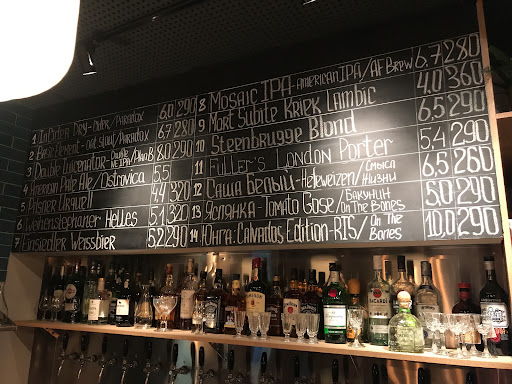 1 InCider Dry - cider / Paradox 6.0 290
2 Element - oat stout / Paradox 6.7 280
3 Double - Double IPA / Plan B 8.0 290
4 American Pale Ale / Ostrovica 5.5
5 Pilsner Urquell 4.4 320
6 Weihenstephaner Helles 5.1 320
7 Einsiedler Weissbier 5.2 290
8 Mosaic IPA - american IPA / AF Brew 6.7 280
9 Mort Subite Kriek Lambic 4.0 360
10 Steenbrugge Blond 6.5 290
11 Fuller's London Porter 5.4 290
12 Саша Белый - Hefeweizen / Смысл Жизни 6.5 260
13 Яслянка - Tomato Gose / Бакунин / On The Bones 5.0 290
14 Юнга: Calvados Edition - RIS / On The Bones 10.0 290
BACARDI